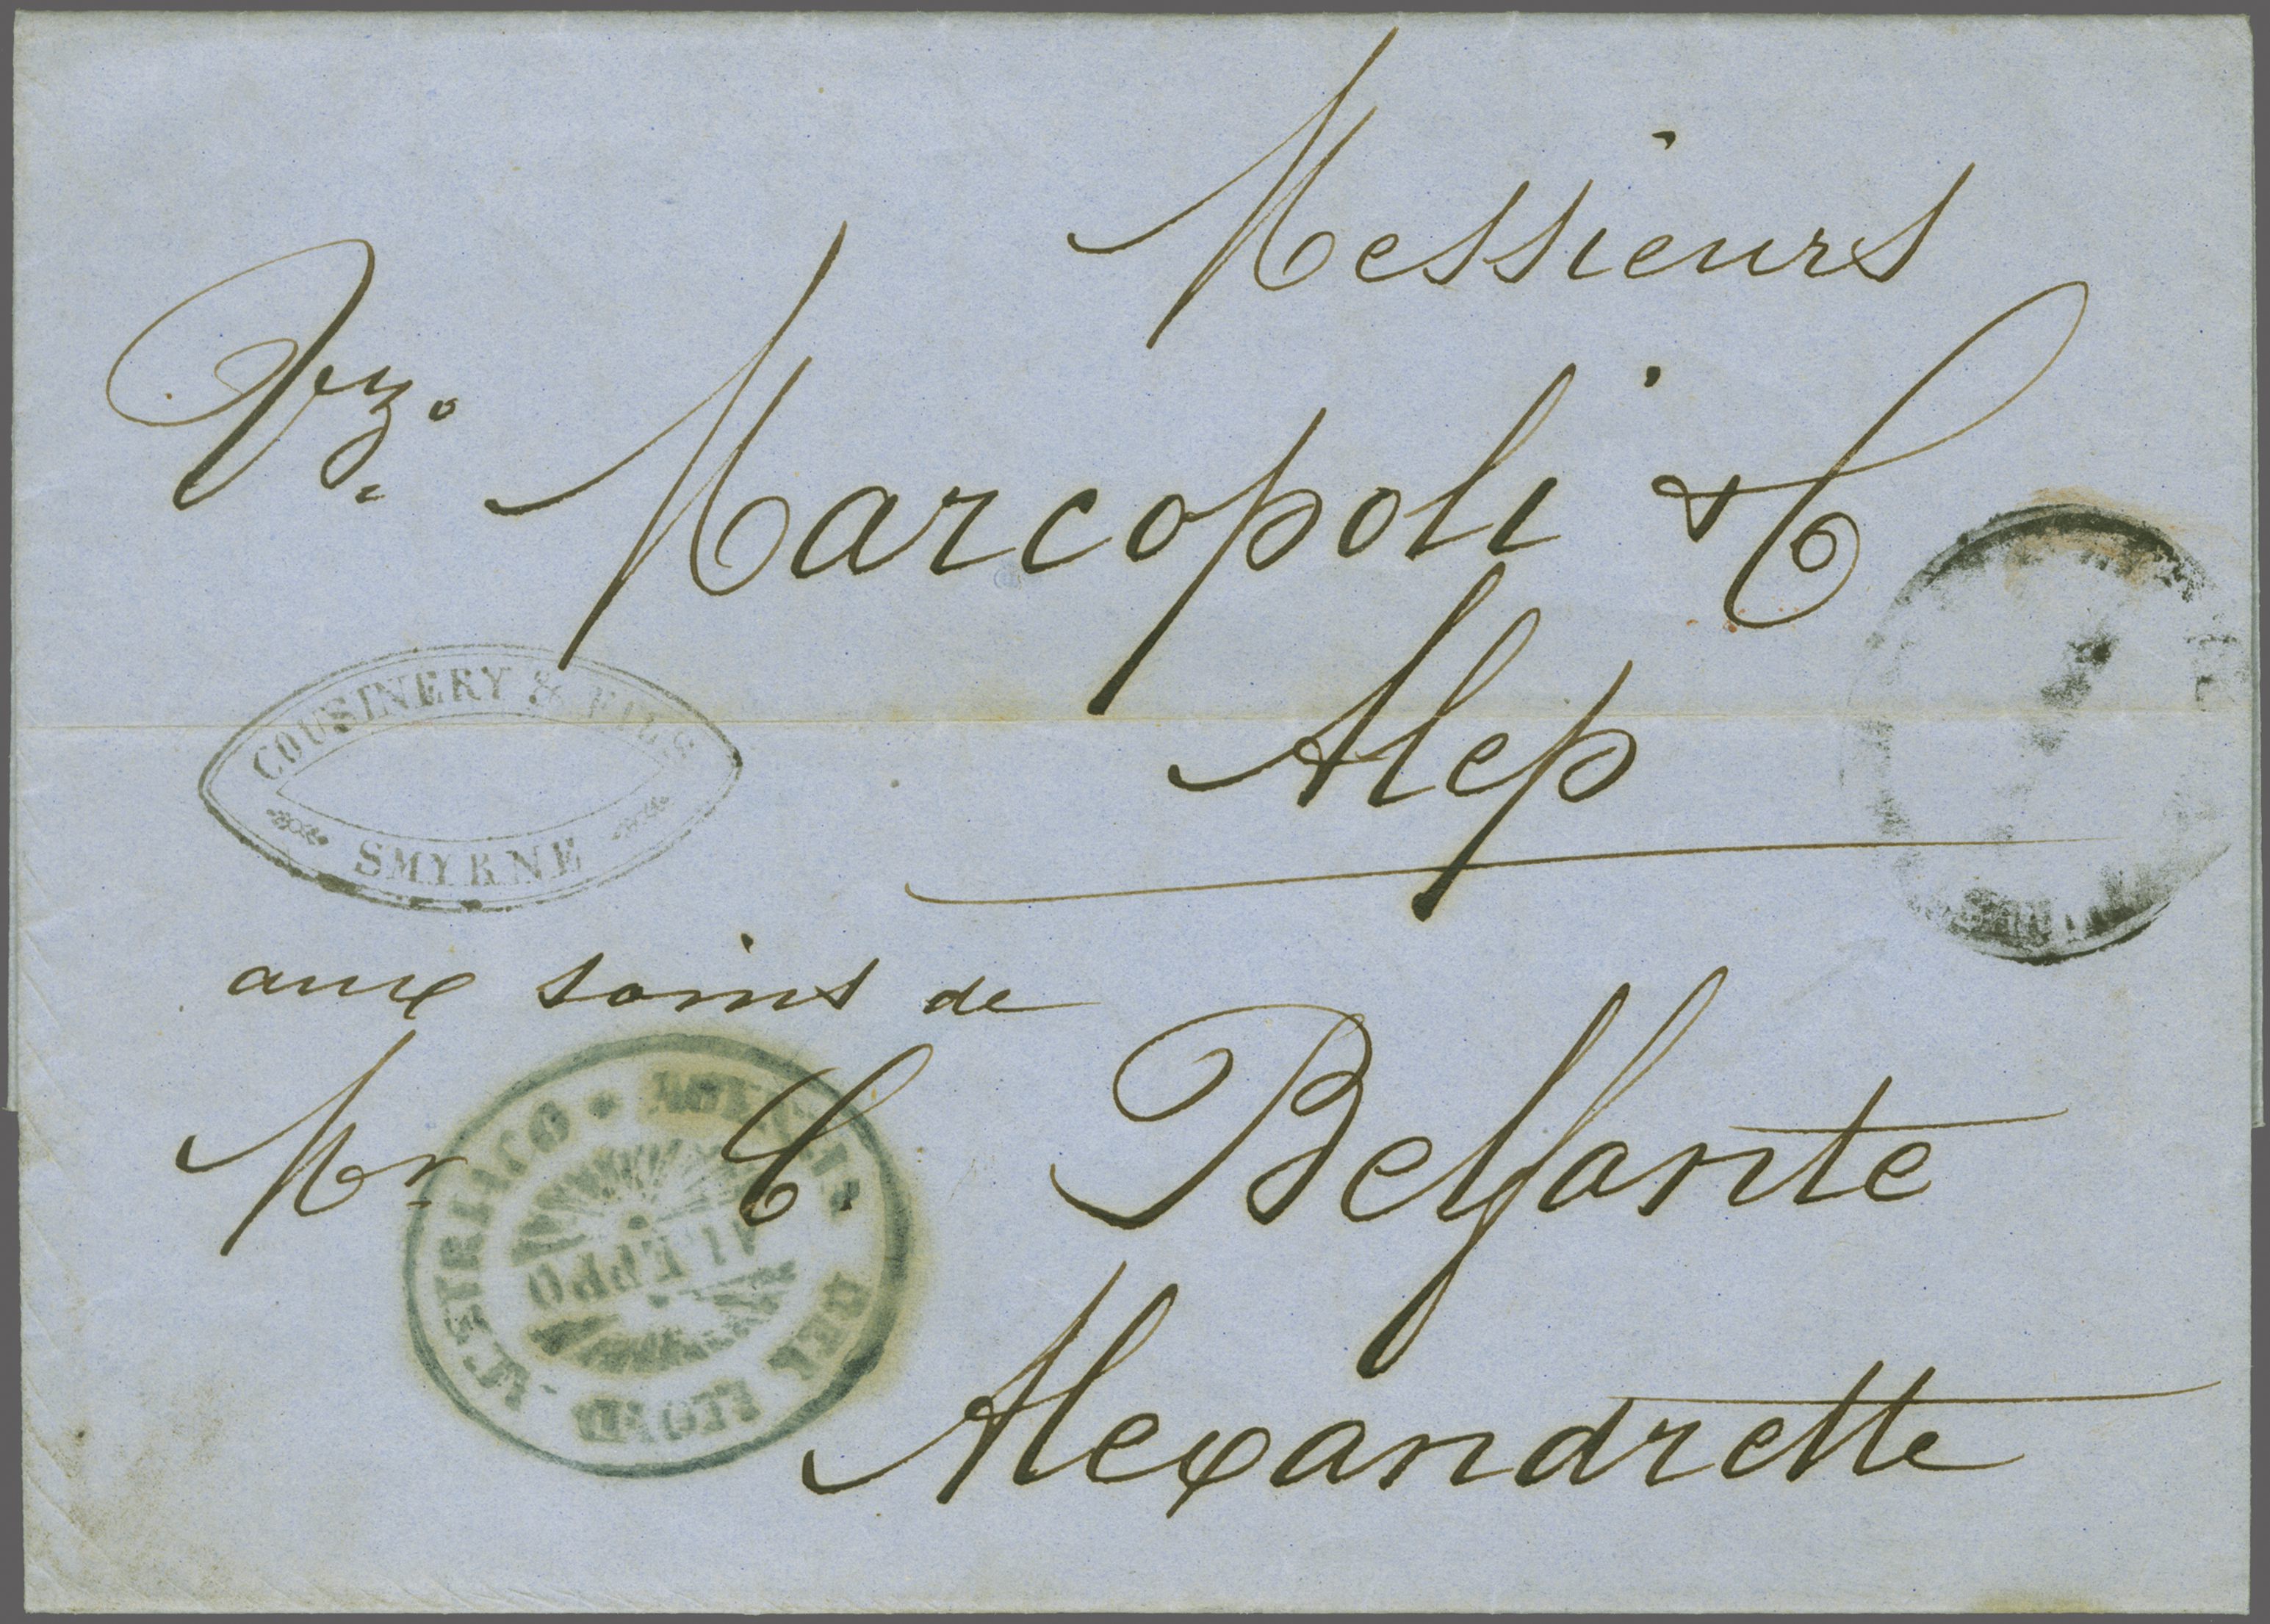 Messieurs
Marcopoli & C
Alep
COUSINERY & FILS
SMYRNE
aux soins de
Mr C. Belfante
Alexandrette
AGENZIA DEL LLOYD AUSTRIACO
ALEPPO